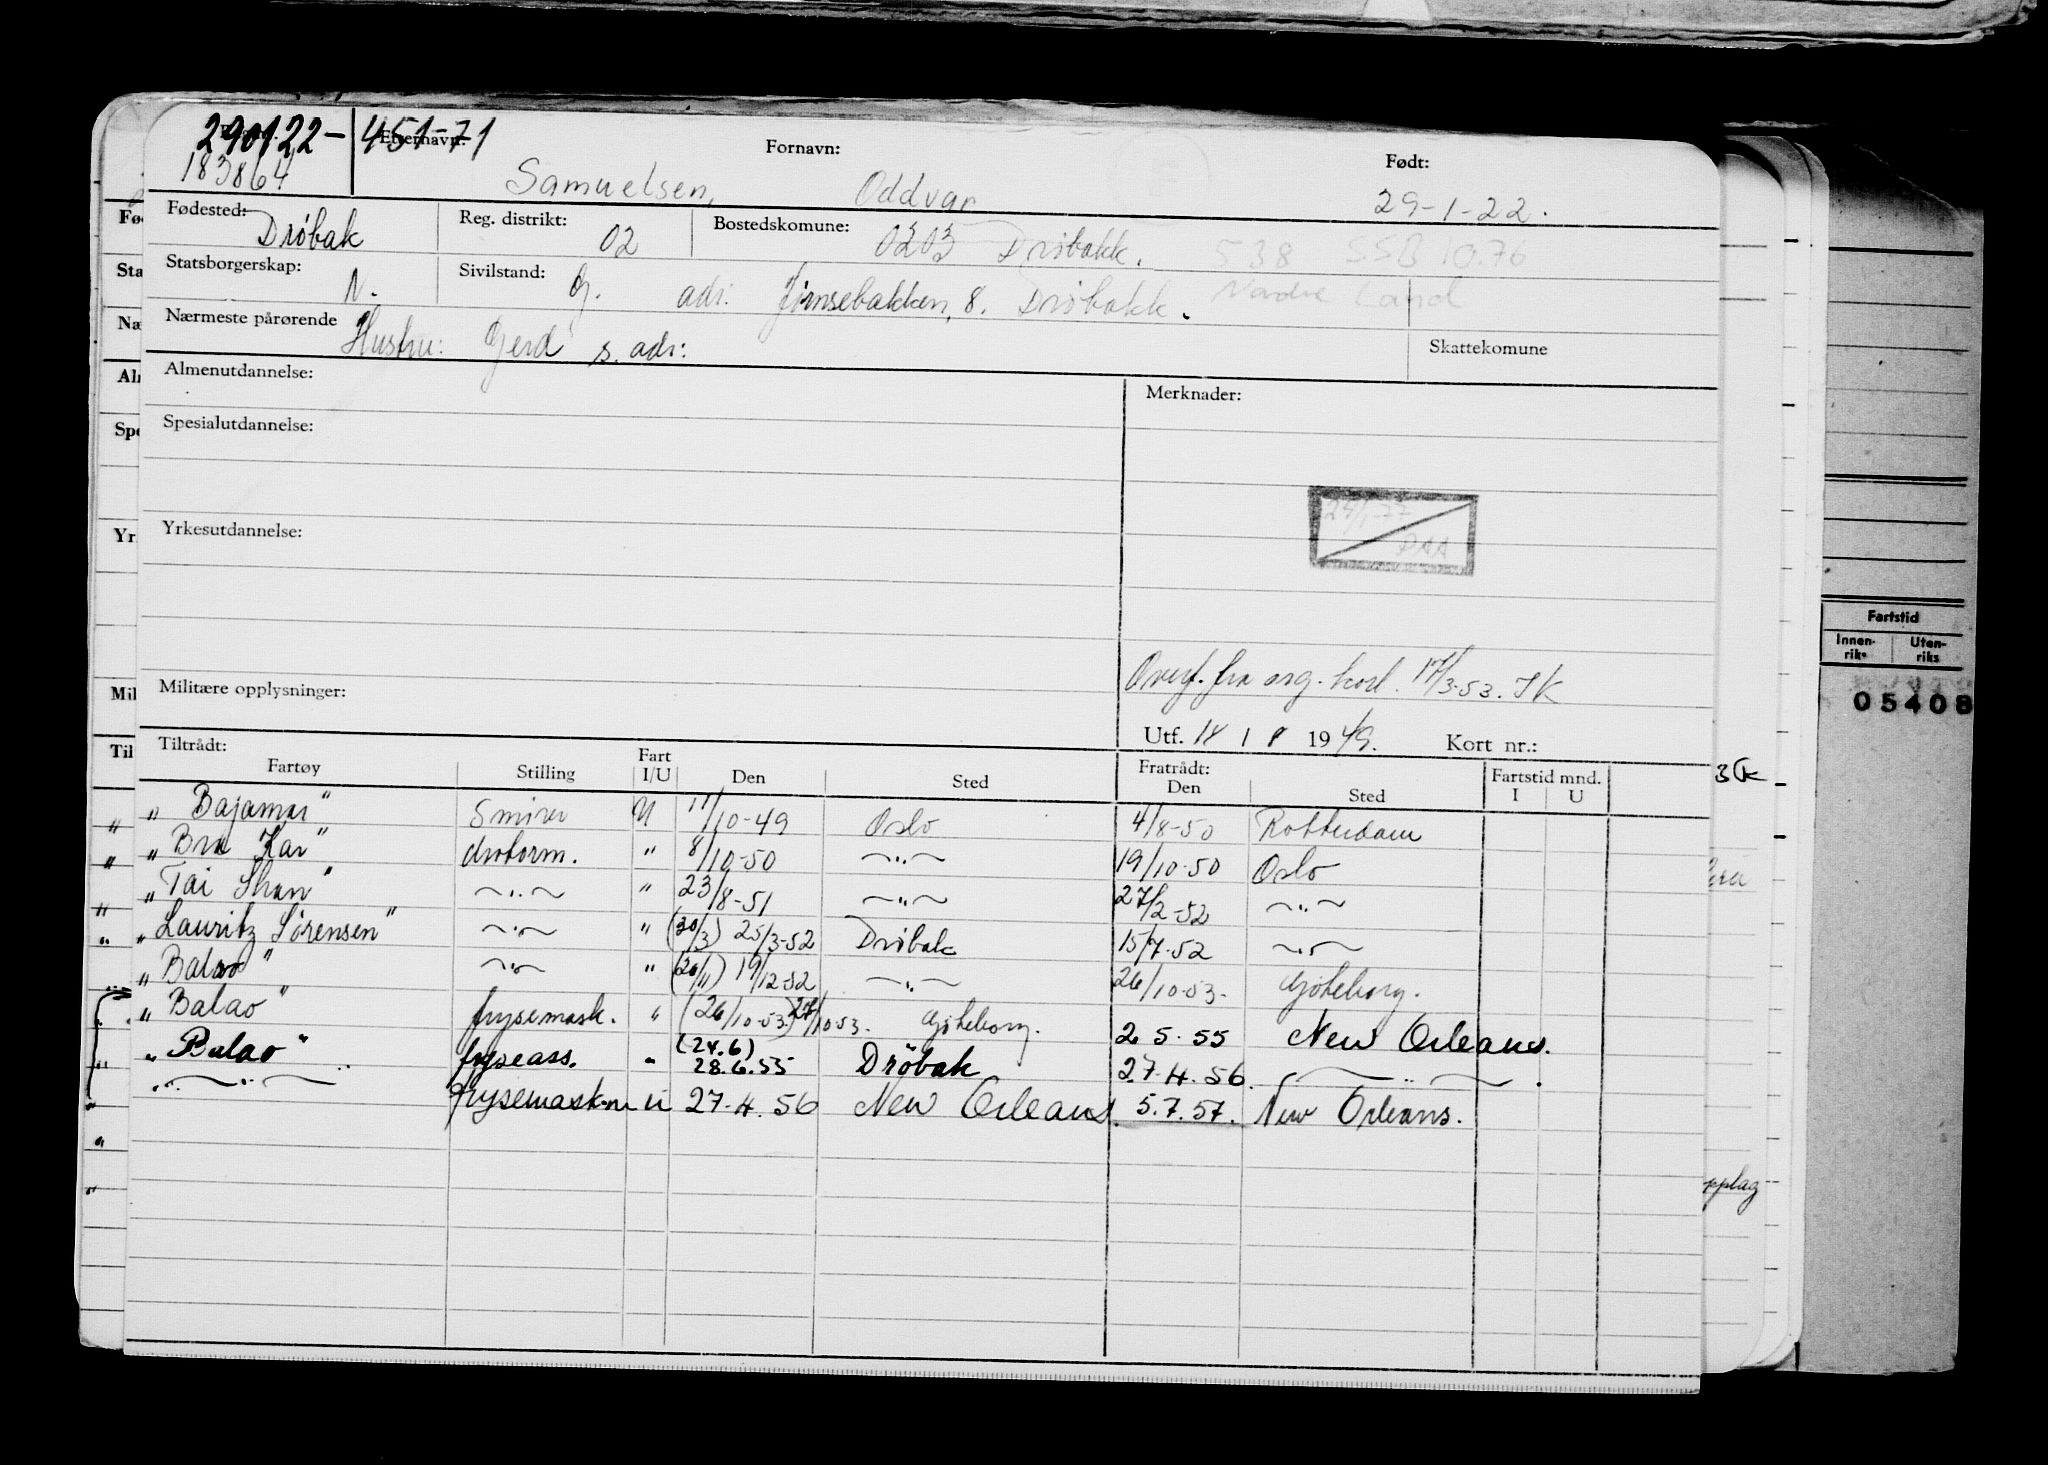 290122-451-71
Etternavn:
Fornavn:
Født:
183864
Samuelsen, Oddvar 29-1-22.
Fødested: Drøbak
Reg. distrikt: 02
Bostedskomune: 0203 Drøbakk. 538 SSB 10.76
Statsborgerskap: N.
Sivilstand: G. adr. 8. Drøbakk. Nordre Land
Nærmeste pårørende Hustru: Gerd s. adr:
Skattekomune
Almenutdannelse:
Merknader:
Spesialutdannelse:
Yrkesutdannelse:
Militære opplysninger:
Overf. fra org. kort. 17/3-53. JK
Utf. 18 / 8 1949. Kort nr.:
Tiltrådt:
Fratrådt:
Fartstid mnd.
Fartøy Stilling Fart I/U Den Sted Den Sted I U
„ Bajamar" Smører U 11/10-49 Oslo 4/8-50 Rotterdam
„ Bra Kar" motorm. " 8/10-50 —"— 19/10-50 Oslo
„ Tai Shan" —"— " 23/8-51 —"— 27/2-52 —"—
„ Lauritz Sørensen" —"— " (20/3) 25/3-52 Drøbak 15/7-52 —"—
„ Balao" —"— " (26/11) 19/12-52 —"— 26/10-53. Gøteborg.
„ Balao" frysemask. " (26/10-53) 27/10-53. Gøteborg. 2.5.55 New Orleans.
„ Balao" fryseass. " (24.6) 28.6.55 Drøbak 27.4.56. —"—.
—"— frysemaskm U 27.4.56 New Orleans. 5.7.57. New Orleans.
Fartstid
Innenriks
Utenriks
05408